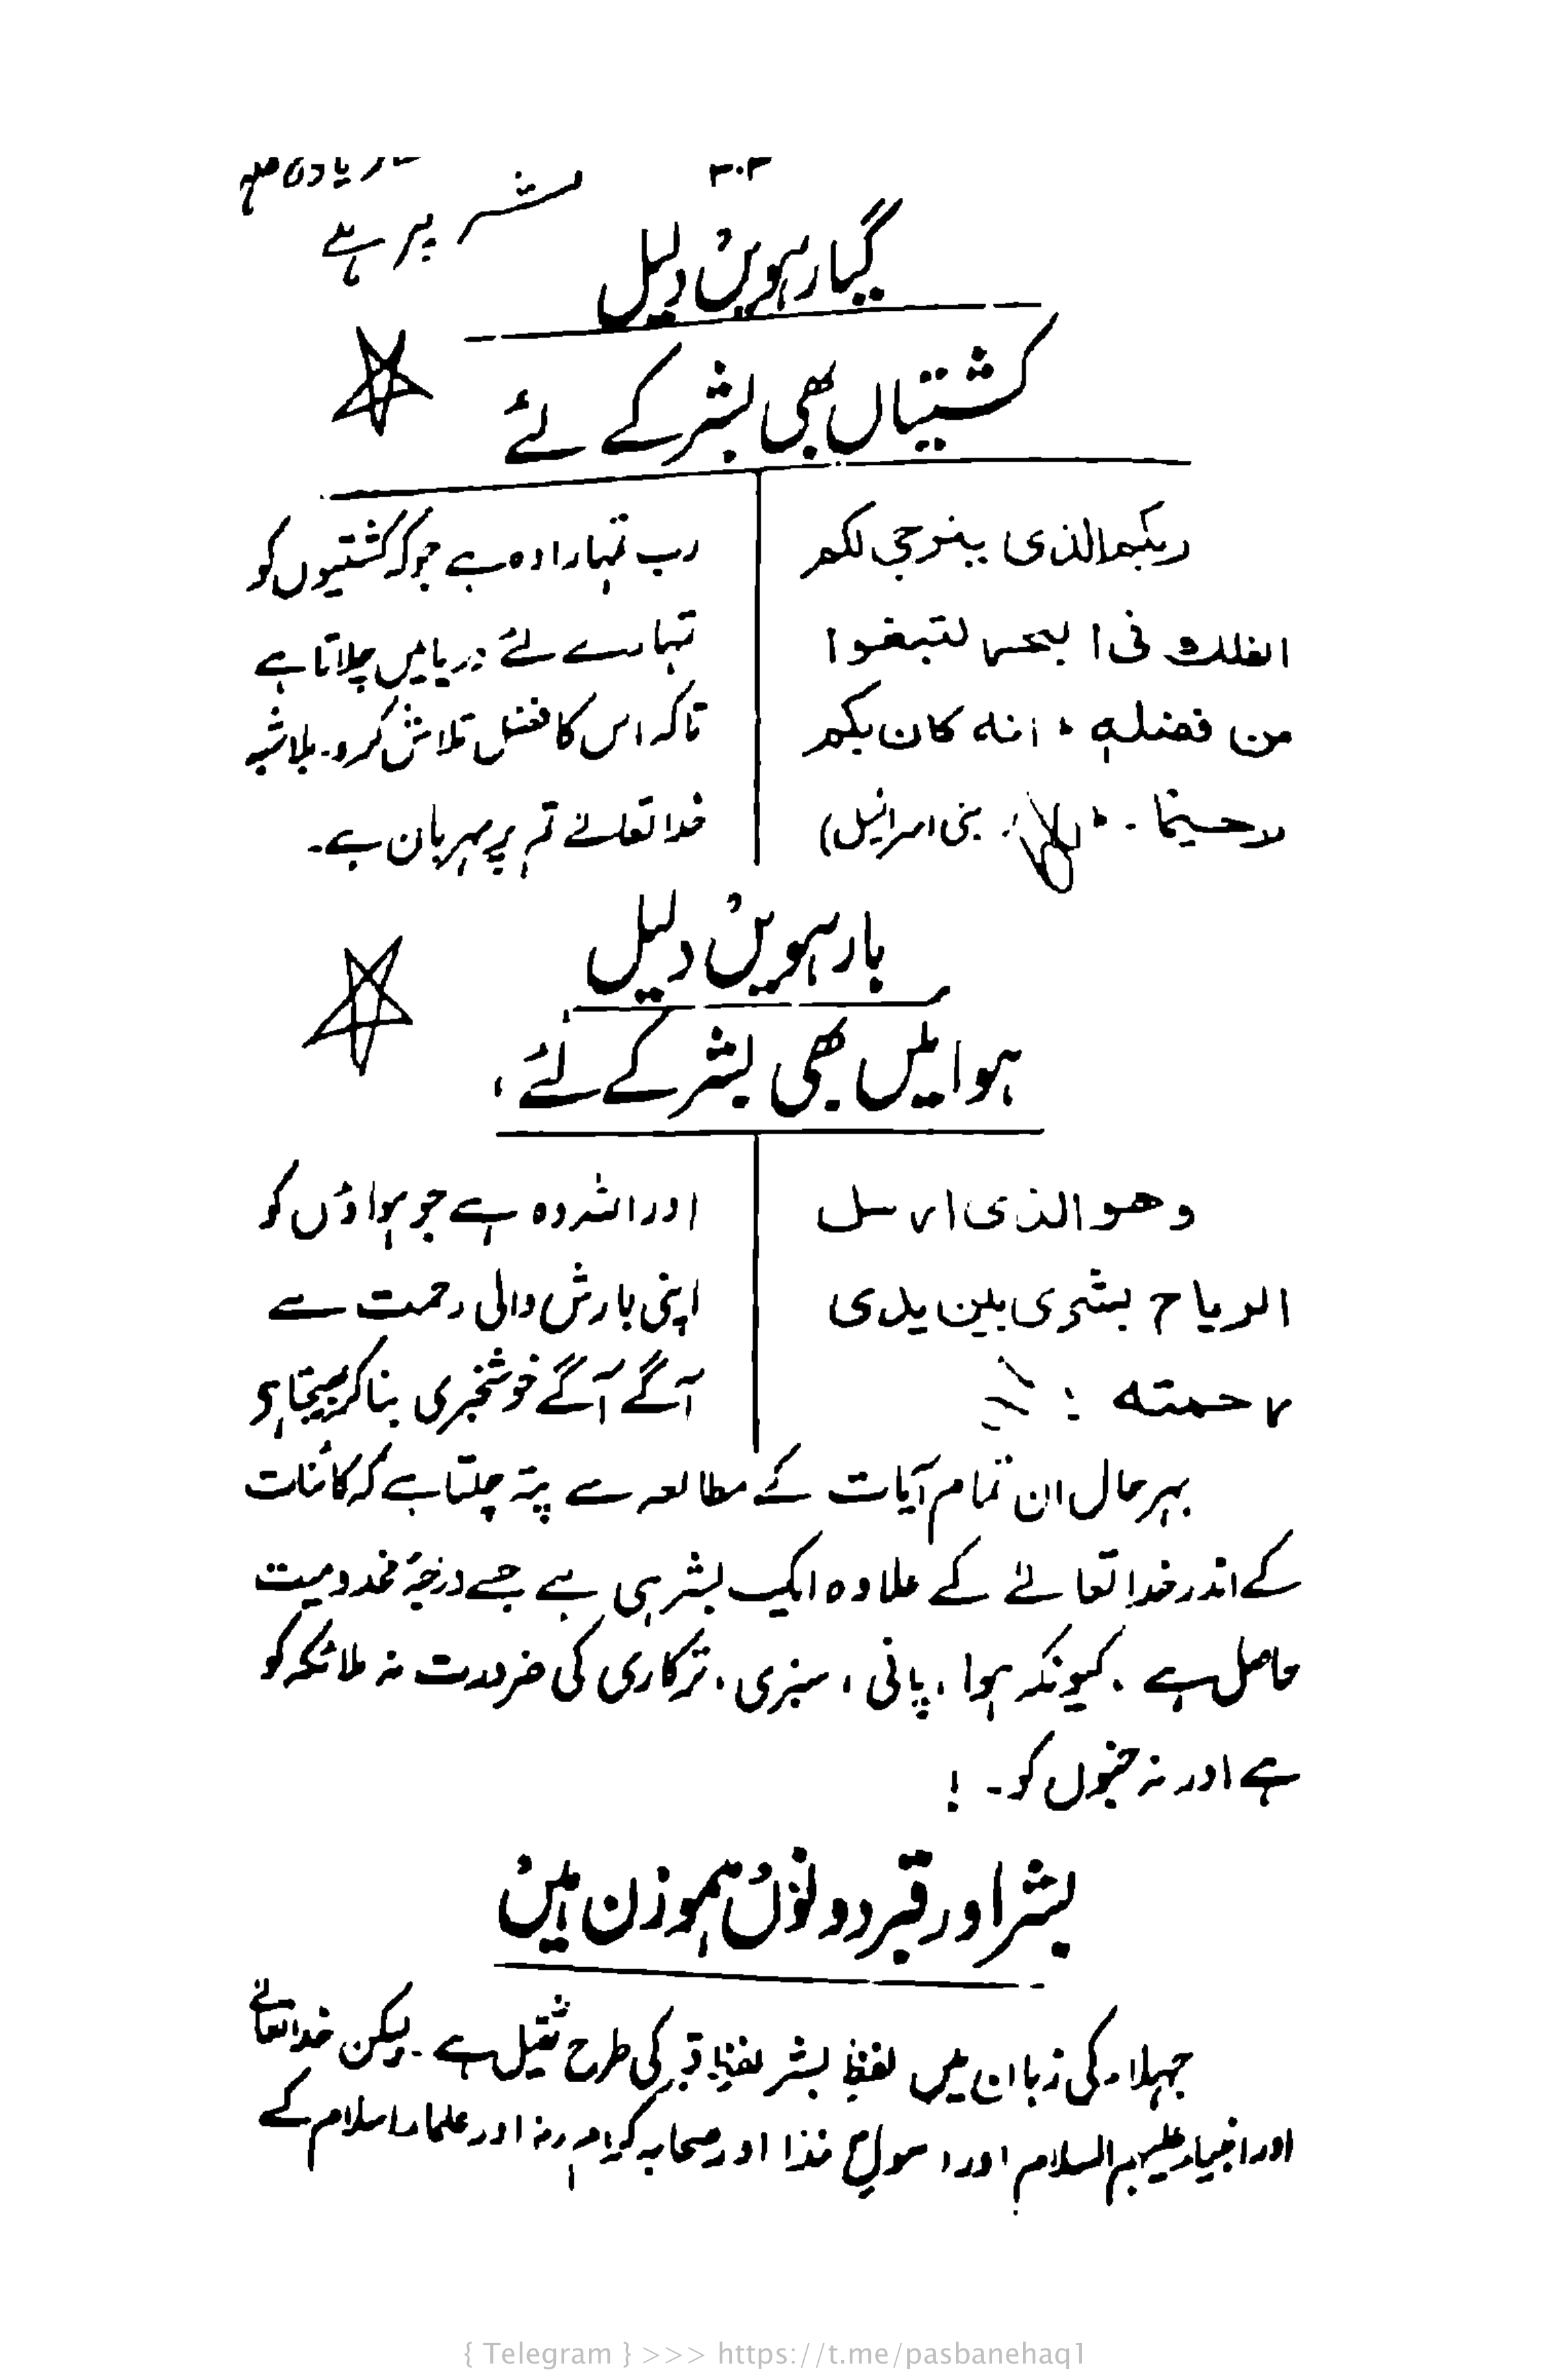 ۳۰۳
پر ہے
گیارہویں دلیل
کشتیاں بھی بشر کے لئے
ربکم الذی یزجی لکم
الفلک فی البحر لتبغوا
من فضلہ ط انہ کان بکم
رحیما ۔ بنی اسرائیل)
رب تمہارا وہ ہے جو کہ کشتیوں کو
تمہارے لئے دریا میں چلاتا ہے
تاکہ اس کا فضل تلاش کرو۔ بلاشبہ
خدا تعالےٰ تم پر مہربان ہے۔
بارہویں دلیل
ہوائیں بھی بشر کے لئے،
وھو الذی ارسل
الریاح بشری بین یدی
رحمتہ :
اور اللہ وہ ہے جو ہواؤں کو
اپنی بارش والی رحمت سے
آگے آگے خوشخبری بنا کر بھیجتا ہے
بہرحال ان تمام آیات کے مطالعہ سے پتہ چلتا ہے کہ کائنات
کے اندر خدا تعالےٰ کے علاوہ ایک بشر ہی ہے جسے درجۂ مخدومیت
حاصل ہے ۔ کیونکہ ہوا ، پانی ، سبزی ، ترکاری کی ضرورت نہ ملائکہ کو
ہے اور نہ جنوں کو۔ !
بشر اور قبر دونوں ہموزن ہیں
جہلاء کی زبان میں لفظ بشر لفظ قبر کی طرح ثقیل ہے ۔ لیکن خدا تعالےٰ
اور انبیاء علیہم السلام اور رسول خدا اور صحابہ کرام رضہ اور علماء اسلام کے
{ Telegram } >>> https://t.me/pasbanehaq1